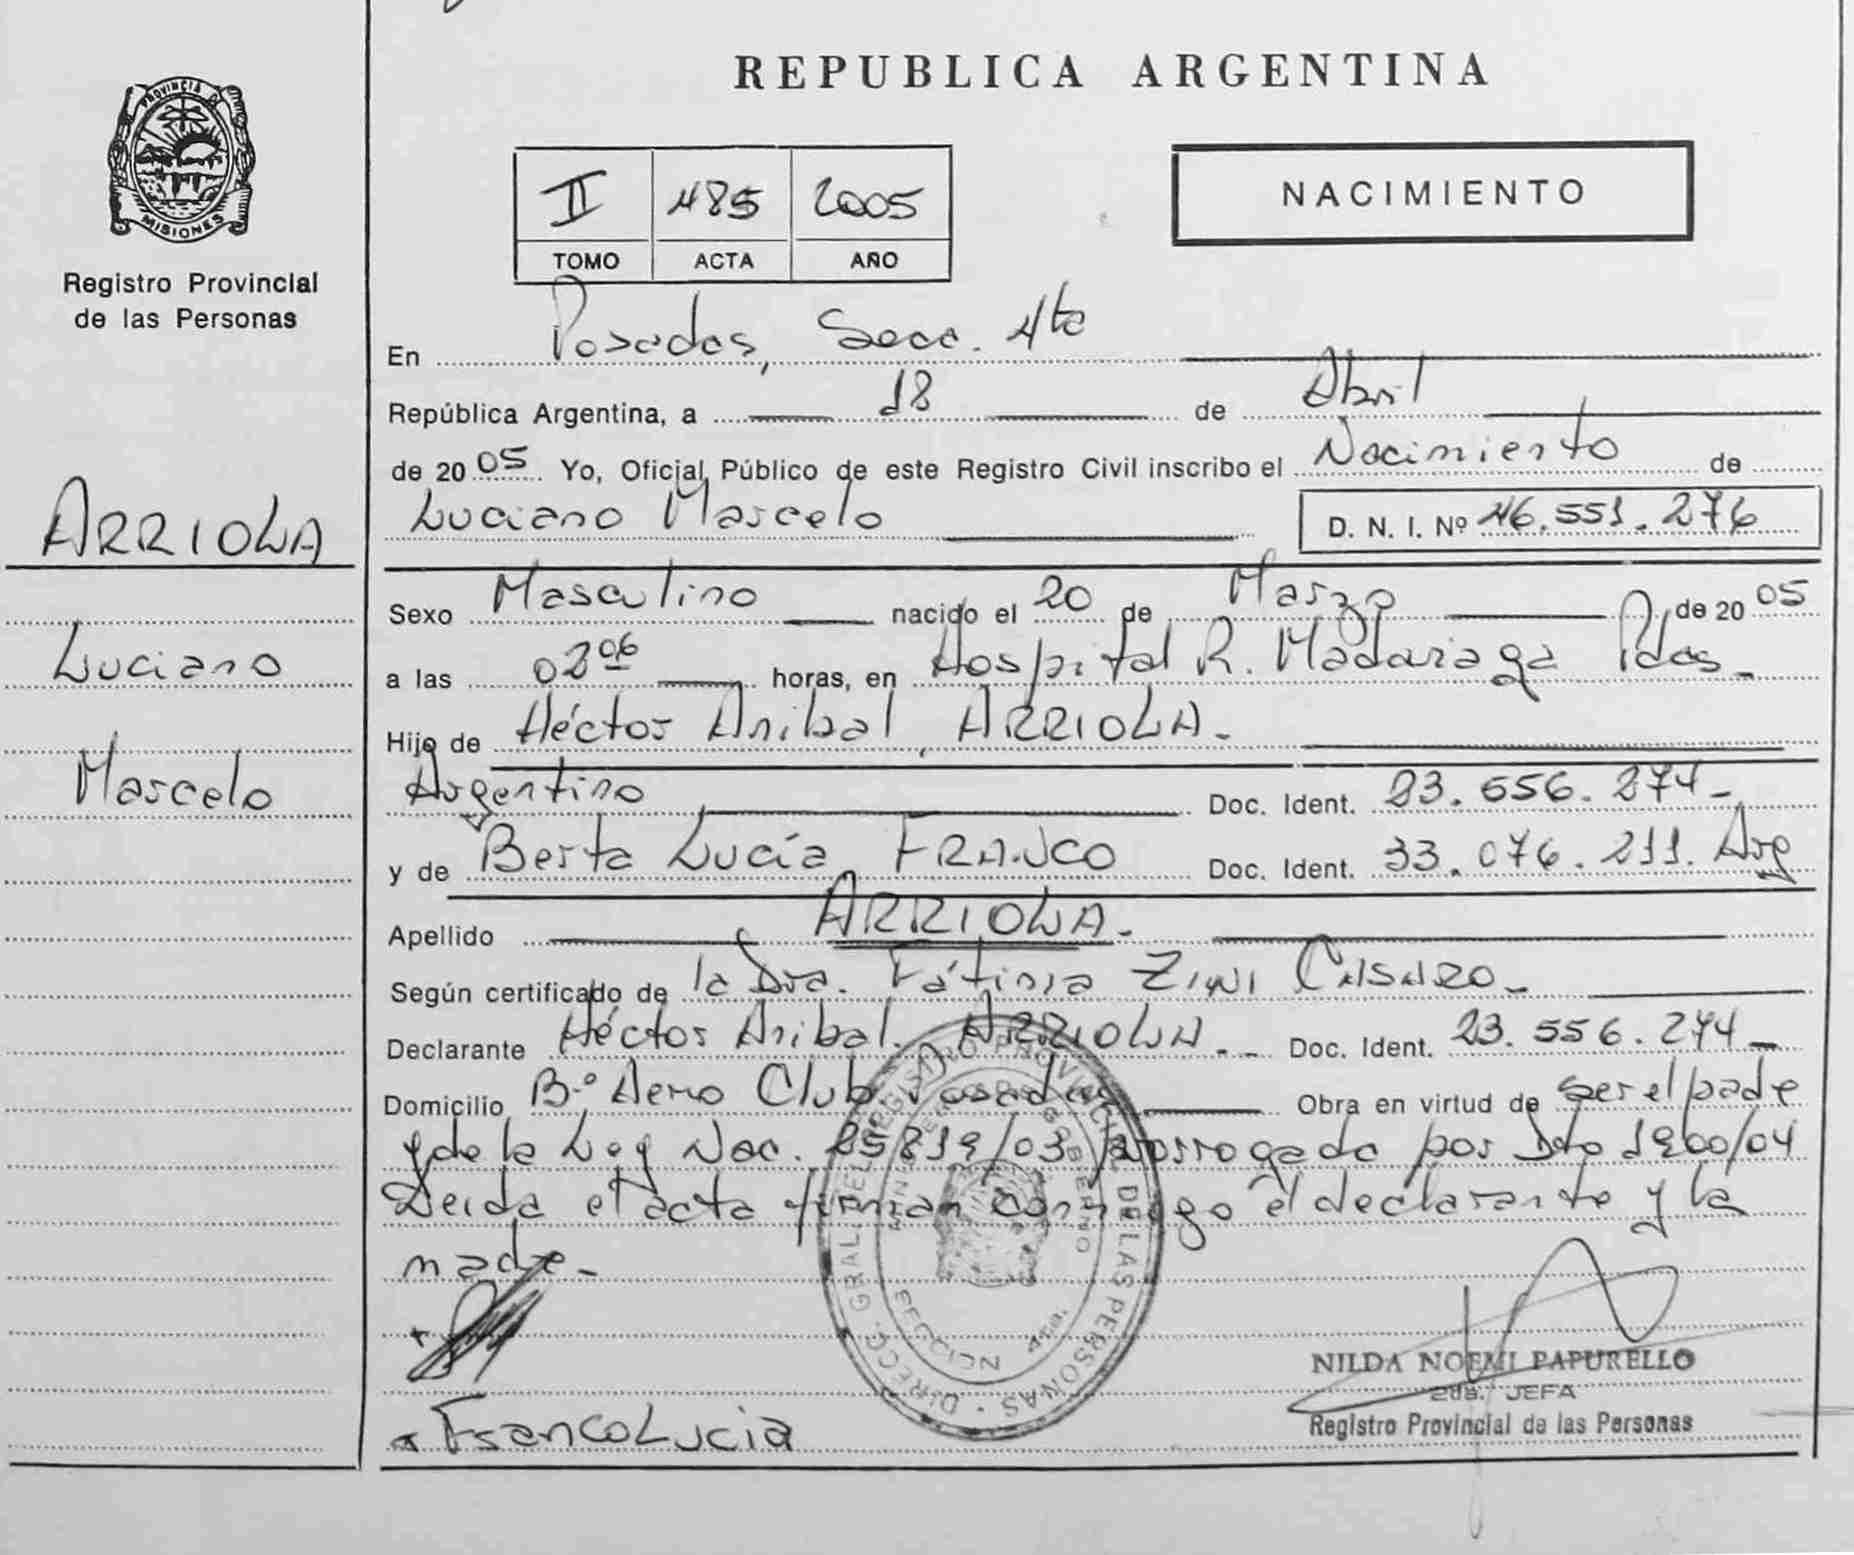 REPUBLICA ARGENTINA
PROVINCIA DE
MISIONES
Registro Provincial
de las Personas
II 485 2005
TOMO ACTA AÑO
NACIMIENTO
En Posadas, Secc. 4ta
República Argentina, a 18 de Abril
de 2005 Yo, Oficial Público de este Registro Civil inscribo el Nacimiento de
Luciano Marcelo D. N. I. Nº 46.551.276
ARRIOLA
Luciano
Marcelo
Sexo Masculino nacido el 20 de Marzo de 2005
a las 02 06 horas, en Hospital R. Madariaga Pdas_
Hijo de Héctor Anibal, ARRIOLA._
Argentino Doc. Ident. 23.556.274_
y de Berta Lucía FRANCO Doc. Ident. 33.076.211. Arg
Apellido ARRIOLA._
Según certificado de la Dra. Fátima ZINI CASARO_
Declarante Héctor Anibal. ARRIOLA._ Doc. Ident. 23.556.274_
Domicilio B.º Aero Club Posadas Obra en virtud de ser el padre
y de la Ley Nac. 25819/03 prorrogada por Dto 1900/04
Leida el acta firman conmigo el declarante y la
madre_
Franco Lucia
DIRECC. GRAL. DEL REGISTRO PROVINCIAL DE LAS PERSONAS
MINISTERIO DE GOBIERNO
SECCION 4ta.
NILDA NOEMI PAPURELLO
2da. JEFA
Registro Provincial de las Personas